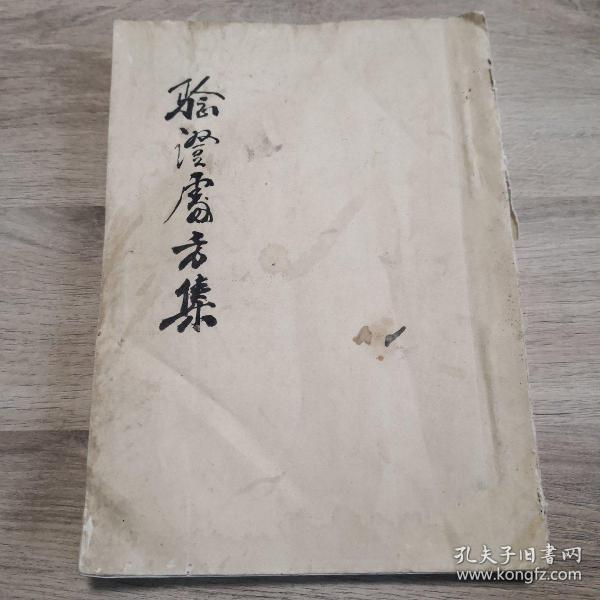 验證處方集
孔夫子旧书网
www.kongfz.com